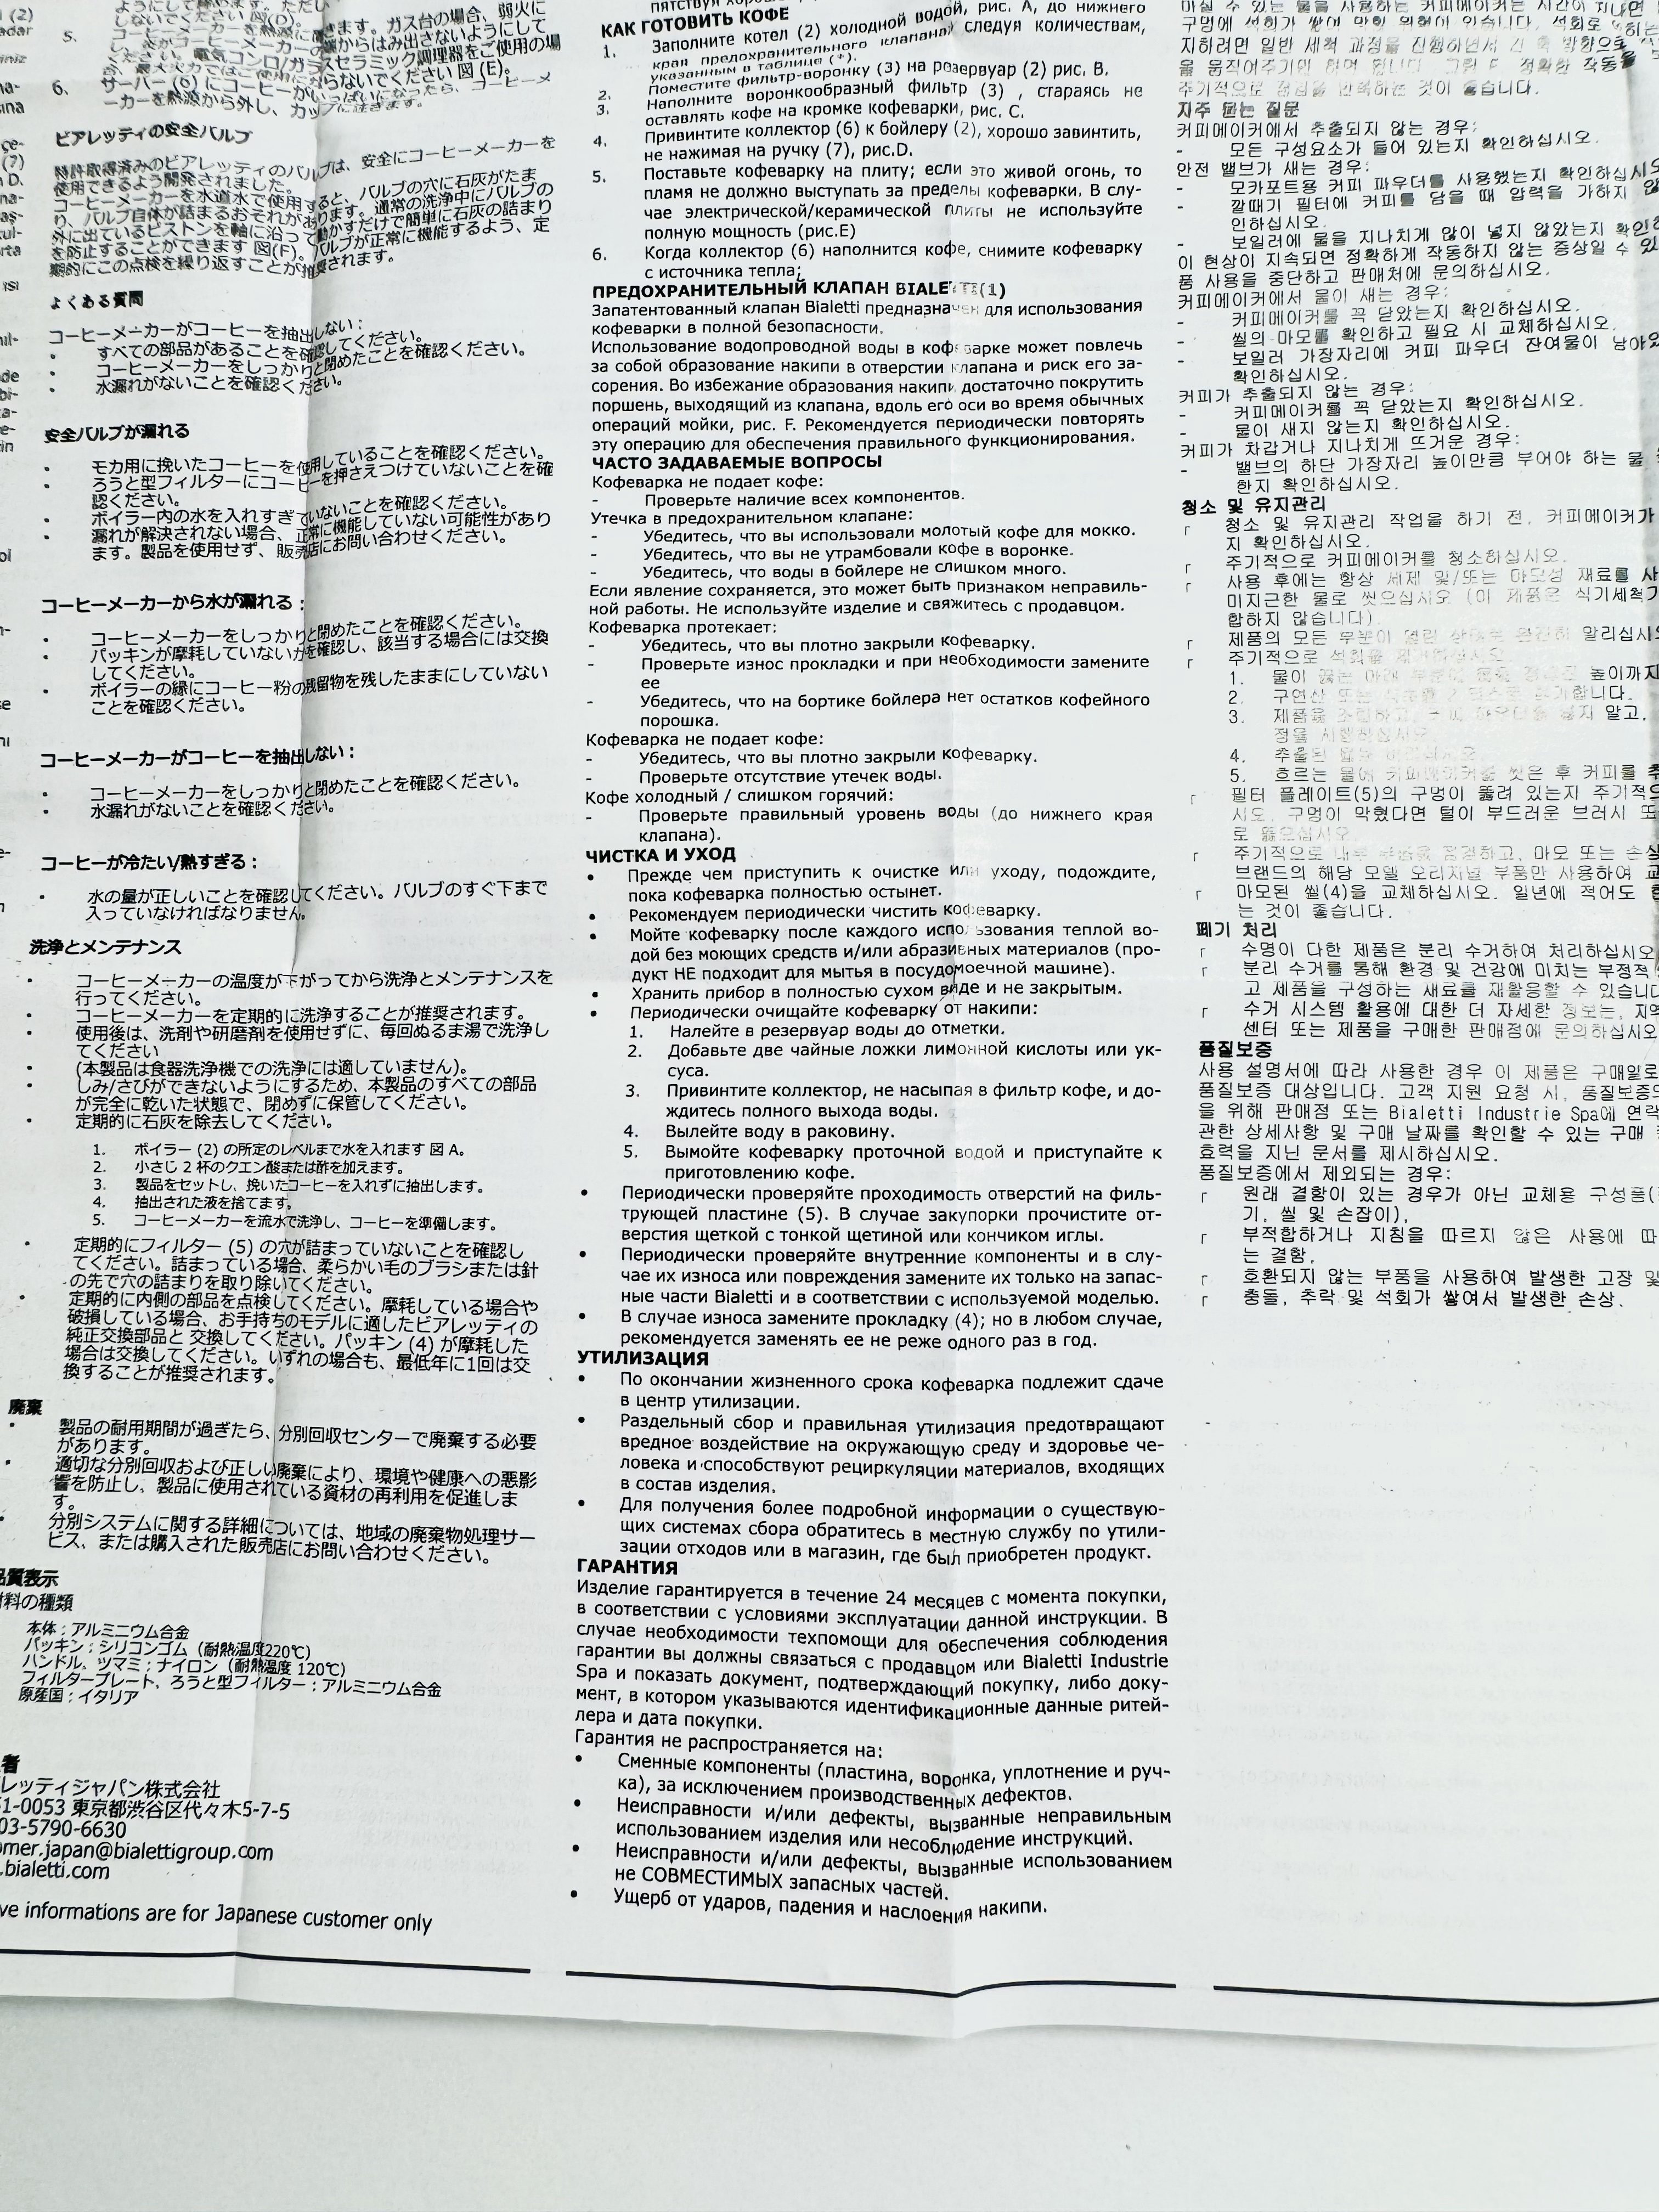 5. コーヒーメーカーの
6. サーバー (6) にコーヒーがいっぱいになったら、コーヒーメ
ーカーを熱源から外し、カップに注ぎます。
ビアレッティの安全バルブ
特許取得済みのビアレッティのバルブは、安全にコーヒーメーカーを
使用できるよう開発されました。
コーヒーメーカーを水道水で使用すると、バルブの穴に石灰がたま
り、バルブ自体が詰まるおそれがあります。通常の洗浄中にバルブの
外に出ているピストンを軸に沿って動かすだけで簡単に石灰の詰まり
を防止することができます 図(F)。バルブが正常に機能するよう、定
期的にこの点検を繰り返すことが推奨されます。
よくある質問
コーヒーメーカーがコーヒーを抽出しない：
• すべての部品があることを確認してください。
• コーヒーメーカーをしっかりと閉めたことを確認ください。
• 水漏れがないことを確認ください。
安全バルブが漏れる
• モカ用に挽いたコーヒーを使用していることを確認ください。
• ろうと型フィルターにコーヒーを押さえつけていないことを確
認ください。
• ボイラー内の水を入れすぎていないことを確認ください。
• 漏れが解決されない場合、正常に機能していない可能性があり
ます。製品を使用せず、販売店にお問い合わせください。
コーヒーメーカーから水が漏れる：
• コーヒーメーカーをしっかりと閉めたことを確認ください。
• パッキンが摩耗していないかを確認し、該当する場合には交換
してください。
• ボイラーの縁にコーヒー粉の残留物を残したままにしていない
ことを確認ください。
コーヒーメーカーがコーヒーを抽出しない：
• コーヒーメーカーをしっかりと閉めたことを確認ください。
• 水漏れがないことを確認ください。
コーヒーが冷たい/熱すぎる：
• 水の量が正しいことを確認してください。バルブのすぐ下まで
入っていなければなりません。
洗浄とメンテナンス
• コーヒーメーカーの温度が下がってから洗浄とメンテナンスを
行ってください。
• コーヒーメーカーを定期的に洗浄することが推奨されます。
• 使用後は、洗剤や研磨剤を使用せずに、毎回ぬるま湯で洗浄し
てください
• (本製品は食器洗浄機での洗浄には適していません)。
• しみ/さびができないようにするため、本製品のすべての部品
が完全に乾いた状態で、閉めずに保管してください。
• 定期的に石灰を除去してください。
1. ボイラー (2) の所定のレベルまで水を入れます 図 A。
2. 小さじ 2 杯のクエン酸または酢を加えます。
3. 製品をセットし、挽いたコーヒーを入れずに抽出します。
4. 抽出された液を捨てます。
5. コーヒーメーカーを流水で洗浄し、コーヒーを準備します。
• 定期的にフィルター (5) の穴が詰まっていないことを確認し
てください。詰まっている場合、柔らかい毛のブラシまたは針
の先で穴の詰まりを取り除いてください。
• 定期的に内側の部品を点検してください。摩耗している場合や
破損している場合、お手持ちのモデルに適したビアレッティの
純正交換部品と 交換してください。パッキン (4) が摩耗した
場合は交換してください。いずれの場合も、最低年に1回は交
換することが推奨されます。
廃棄
• 製品の耐用期間が過ぎたら、分別回収センターで廃棄する必要
があります。
• 適切な分別回収および正しい廃棄により、環境や健康への悪影
響を防止し、製品に使用されている資材の再利用を促進しま
す。
• 分別システムに関する詳細については、地域の廃棄物処理サー
ビス、または購入された販売店にお問い合わせください。
品質表示
材料の種類
本体：アルミニウム合金
パッキン：シリコンゴム（耐熱温度220℃)
ハンドル、ツマミ：ナイロン（耐熱温度 120℃)
フィルタープレート、ろうと型フィルター：アルミニウム合金
原産国：イタリア
者
レッティジャパン株式会社
1-0053 東京都渋谷区代々木5-7-5
03-5790-6630
omer.japan@bialettigroup.com
.bialetti.com
ve informations are for Japanese customer only
КАК ГОТОВИТЬ КОФЕ
1. Заполните котел (2) холодной водой, рис. A, до нижнего
края предохранительного клапана, следуя количествам,
указанным в таблице (*).
2. Поместите фильтр-воронку (3) на резервуар (2) рис. B.
3. Наполните воронкообразный фильтр (3) , стараясь не
оставлять кофе на кромке кофеварки, рис. C.
4. Привинтите коллектор (6) к бойлеру (2), хорошо завинтить,
не нажимая на ручку (7), рис.D.
5. Поставьте кофеварку на плиту; если это живой огонь, то
пламя не должно выступать за пределы кофеварки. В слу-
чае электрической/керамической плиты не используйте
полную мощность (рис.E)
6. Когда коллектор (6) наполнится кофе, снимите кофеварку
с источника тепла;
ПРЕДОХРАНИТЕЛЬНЫЙ КЛАПАН BIALETTI(1)
Запатентованный клапан Bialetti предназначен для использования
кофеварки в полной безопасности.
Использование водопроводной воды в кофеварке может повлечь
за собой образование накипи в отверстии клапана и риск его за-
сорения. Во избежание образования накипи достаточно покрутить
поршень, выходящий из клапана, вдоль его оси во время обычных
операций мойки, рис. F. Рекомендуется периодически повторять
эту операцию для обеспечения правильного функционирования.
ЧАСТО ЗАДАВАЕМЫЕ ВОПРОСЫ
Кофеварка не подает кофе:
- Проверьте наличие всех компонентов.
Утечка в предохранительном клапане:
- Убедитесь, что вы использовали молотый кофе для мокко.
- Убедитесь, что вы не утрамбовали кофе в воронке.
- Убедитесь, что воды в бойлере не слишком много.
Если явление сохраняется, это может быть признаком неправиль-
ной работы. Не используйте изделие и свяжитесь с продавцом.
Кофеварка протекает:
- Убедитесь, что вы плотно закрыли кофеварку.
- Проверьте износ прокладки и при необходимости замените
ее
- Убедитесь, что на бортике бойлера нет остатков кофейного
порошка.
Кофеварка не подает кофе:
- Убедитесь, что вы плотно закрыли кофеварку.
- Проверьте отсутствие утечек воды.
Кофе холодный / слишком горячий:
- Проверьте правильный уровень воды (до нижнего края
клапана).
ЧИСТКА И УХОД
• Прежде чем приступить к очистке или уходу, подождите,
пока кофеварка полностью остынет.
• Рекомендуем периодически чистить кофеварку.
• Мойте кофеварку после каждого использования теплой во-
дой без моющих средств и/или абразивных материалов (про-
дукт НЕ подходит для мытья в посудомоечной машине).
• Хранить прибор в полностью сухом виде и не закрытым.
• Периодически очищайте кофеварку от накипи:
1. Налейте в резервуар воды до отметки.
2. Добавьте две чайные ложки лимонной кислоты или ук-
суса.
3. Привинтите коллектор, не насыпая в фильтр кофе, и до-
ждитесь полного выхода воды.
4. Вылейте воду в раковину.
5. Вымойте кофеварку проточной водой и приступайте к
приготовлению кофе.
• Периодически проверяйте проходимость отверстий на филь-
трующей пластине (5). В случае закупорки прочистите от-
верстия щеткой с тонкой щетиной или кончиком иглы.
• Периодически проверяйте внутренние компоненты и в слу-
чае их износа или повреждения замените их только на запас-
ные части Bialetti и в соответствии с используемой моделью.
• В случае износа замените прокладку (4); но в любом случае,
рекомендуется заменять ее не реже одного раз в год.
УТИЛИЗАЦИЯ
• По окончании жизненного срока кофеварка подлежит сдаче
в центр утилизации.
• Раздельный сбор и правильная утилизация предотвращают
вредное воздействие на окружающую среду и здоровье че-
ловека и способствуют рециркуляции материалов, входящих
в состав изделия.
• Для получения более подробной информации о существую-
щих системах сбора обратитесь в местную службу по утили-
зации отходов или в магазин, где был приобретен продукт.
ГАРАНТИЯ
Изделие гарантируется в течение 24 месяцев с момента покупки,
в соответствии с условиями эксплуатации данной инструкции. В
случае необходимости техпомощи для обеспечения соблюдения
гарантии вы должны связаться с продавцом или Bialetti Industrie
Spa и показать документ, подтверждающий покупку, либо доку-
мент, в котором указываются идентификационные данные ритей-
лера и дата покупки.
Гарантия не распространяется на:
• Сменные компоненты (пластина, воронка, уплотнение и руч-
ка), за исключением производственных дефектов.
• Неисправности и/или дефекты, вызванные неправильным
использованием изделия или несоблюдение инструкций.
• Неисправности и/или дефекты, вызванные использованием
не СОВМЕСТИМЫХ запасных частей.
• Ущерб от ударов, падения и наслоения накипи.
자주 묻는 질문
커피메이커에서 추출되지 않는 경우:
- 모든 구성요소가 들어 있는지 확인하십시오.
안전 밸브가 새는 경우:
- 모카포트용 커피 파우더를 사용했는지 확인하십시오
- 깔때기 필터에 커피를 담을 때 압력을 가하지
인하십시오.
- 보일러에 물을 지나치게 많이 넣지 않았는지 확인
이 현상이 지속되면 정확하게 작동하지 않는 증상일 수
품 사용을 중단하고 판매처에 문의하십시오.
커피메이커에서 물이 새는 경우:
- 커피메이커를 꼭 닫았는지 확인하십시오.
- 씰의 마모를 확인하고 필요 시 교체하십시오.
- 보일러 가장자리에 커피 파우더 잔여물이
확인하십시오.
커피가 추출되지 않는 경우:
- 커피메이커를 꼭 닫았는지 확인하십시오.
- 물이 새지 않는지 확인하십시오.
커피가 차갑거나 지나치게 뜨거운 경우:
- 밸브의 하단 가장자리 높이만큼 부어야 하는 물
한지 확인하십시오.
청소 및 유지관리
┌ 청소 및 유지관리 작업을 하기 전, 커피메이커가
지 확인하십시오.
┌ 주기적으로 커피메이커를 청소하십시오.
┌ 사용 후에는 항상 세제 및/또는 마모성 재료를
미지근한 물로 씻으십시오 (이 제품은 식기세척기
합하지 않습니다).
┌ 제품의 모든
┌ 주기적으로 석회를
1. 물이
2. 구연산 또는
3. 제품을
4. 추출된
5. 흐르는 물에 커피메이커를 씻은 후 커피를
┌ 필터 플레이트(5)의 구멍이 뚫려 있는지 주기적으
시오. 구멍이 막혔다면 털이 부드러운 브러시 또
로 뚫으십시오.
┌ 주기적으로 내부 부품을 점검하고, 마모 또는 손상
브랜드의 해당 모델 오리지널 부품만 사용하여
┌ 마모된 씰(4)을 교체하십시오. 일년에 적어도
는 것이 좋습니다.
폐기 처리
┌ 수명이 다한 제품은 분리 수거하여 처리하십시오
┌ 분리 수거를 통해 환경 및 건강에 미치는 부정적
고 제품을 구성하는 재료를 재활용할 수 있습니다
┌ 수거 시스템 활용에 대한 더 자세한 정보는, 지역
센터 또는 제품을 구매한 판매점에 문의하십시오
품질보증
사용 설명서에 따라 사용한 경우 이 제품은 구매일로
품질보증 대상입니다. 고객 지원 요청 시, 품질보증의
을 위해 판매점 또는 Bialetti Industrie Spa에 연락
관한 상세사항 및 구매 날짜를 확인할 수 있는 구매
효력을 지닌 문서를 제시하십시오.
품질보증에서 제외되는 경우:
┌ 원래 결함이 있는 경우가 아닌 교체용 구성품(
기, 씰 및 손잡이),
┌ 부적합하거나 지침을 따르지 않은 사용에 따
는 결함,
┌ 호환되지 않는 부품을 사용하여 발생한 고장 및
┌ 충돌, 추락 및 석회가 쌓여서 발생한 손상.